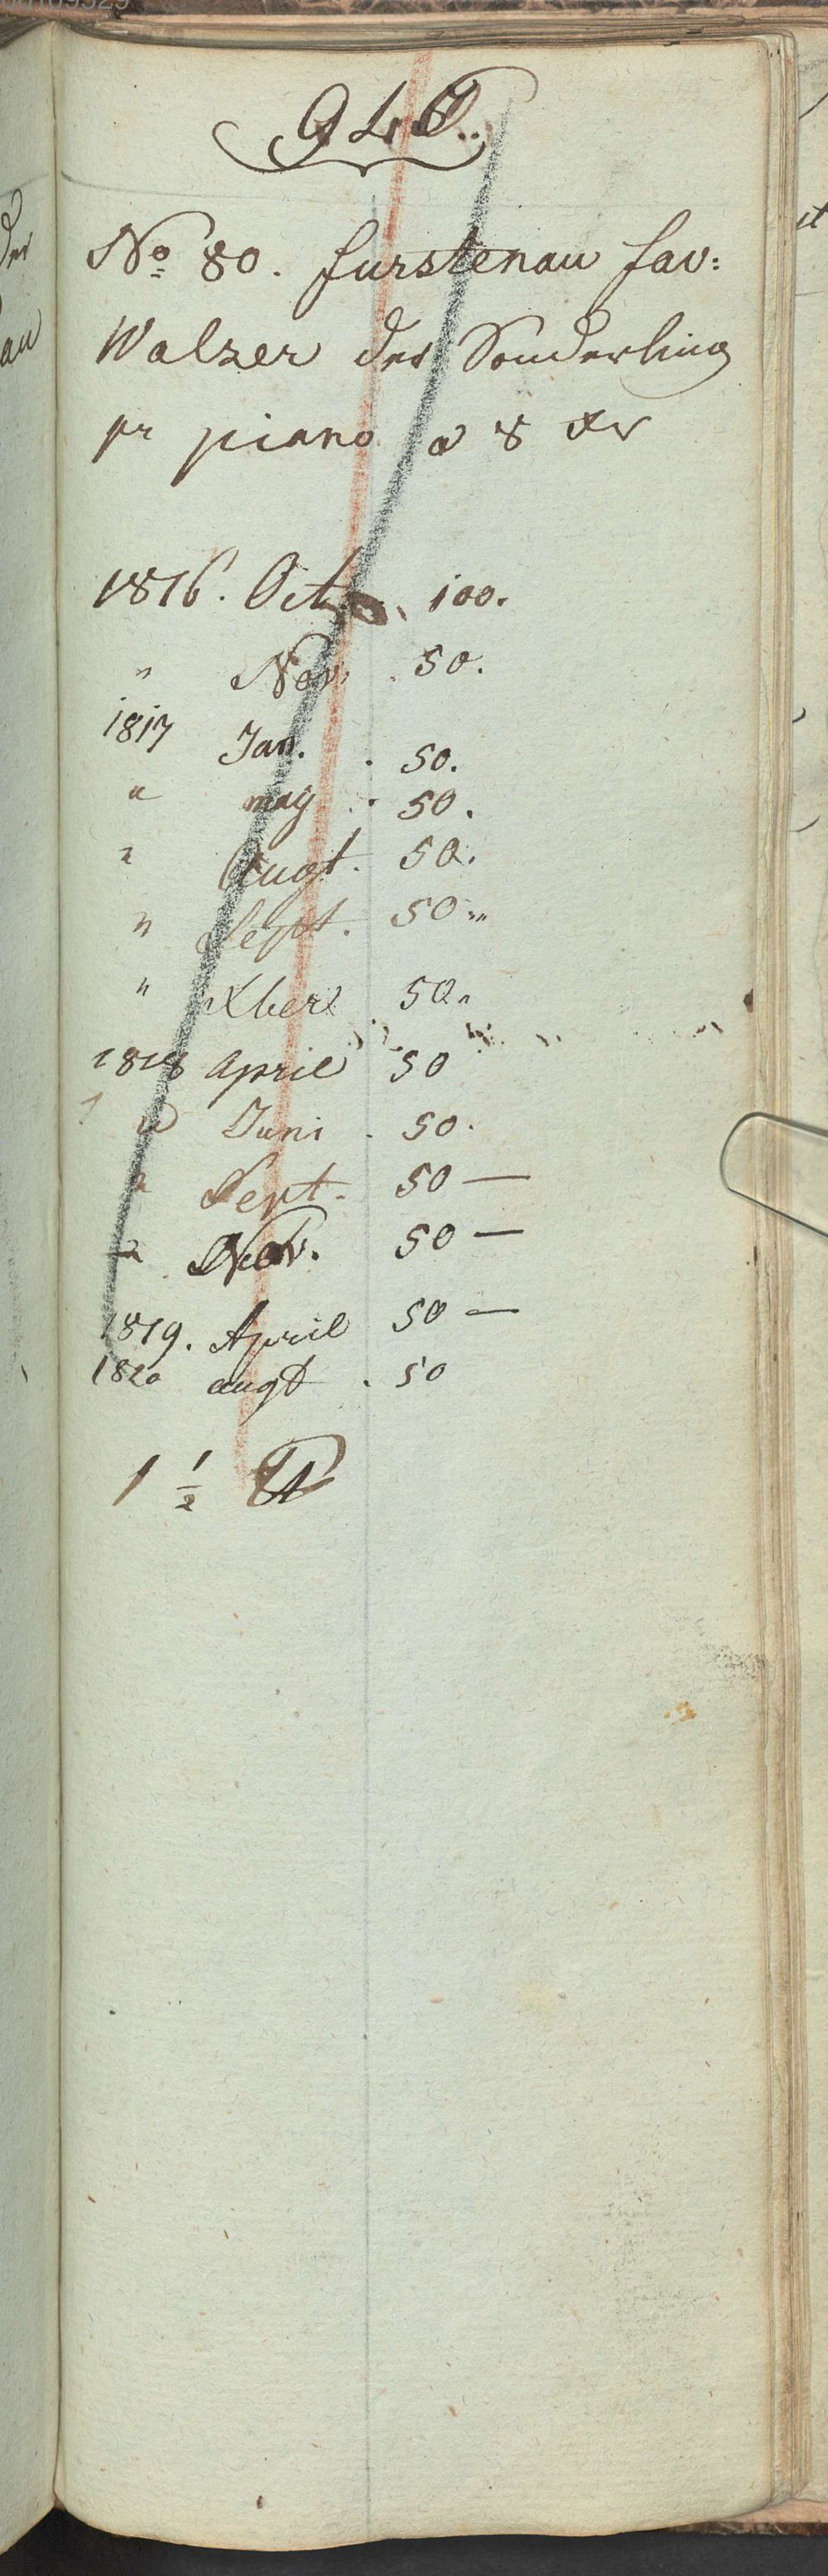 No 80. furstenau fav:
Walzer der Sonderling
pr piano a 8 xr
1816. Oct 100.
" Nov. 50.
1817 Jan. . 50.
" may . 50.
" Augt. 50.
" Sept. 50 "
" Xber 50 "
1818 April 50
" Juni . 50.
" Sept. 50 —
" Nov. 50 —
1819. April 50 —
1820 augt . 50
1 1/2